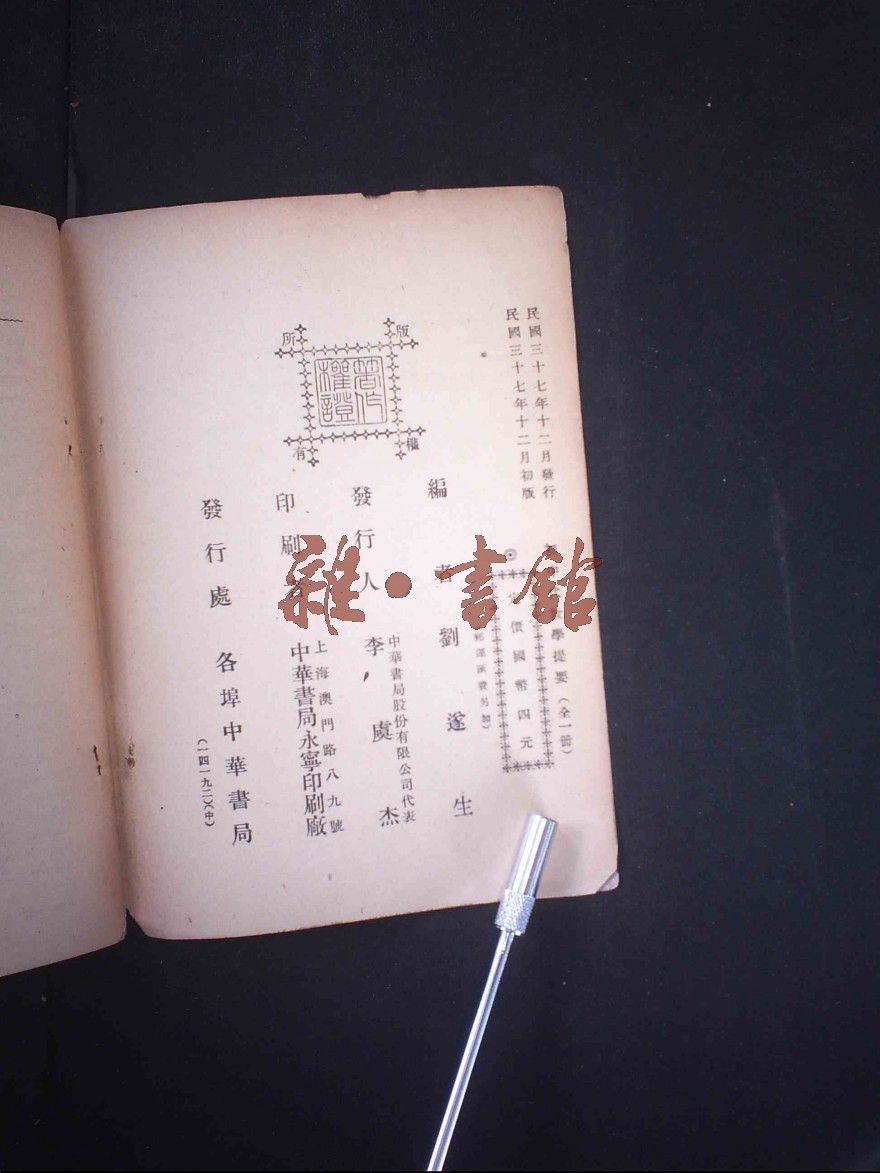 民國三十七年十二月發行
民國三十七年十二月初版
學提要(全一冊)
定價國幣四元
郵運匯費另加)
編者 劉遂生
中華書局股份有限公司代表
發行人 李虞杰
上海澳門路八九號
印刷者 中華書局永寧印刷廠
發行處 各埠中華書局
(一四一九二)(中)
版權所有
著作權證
雜·書館